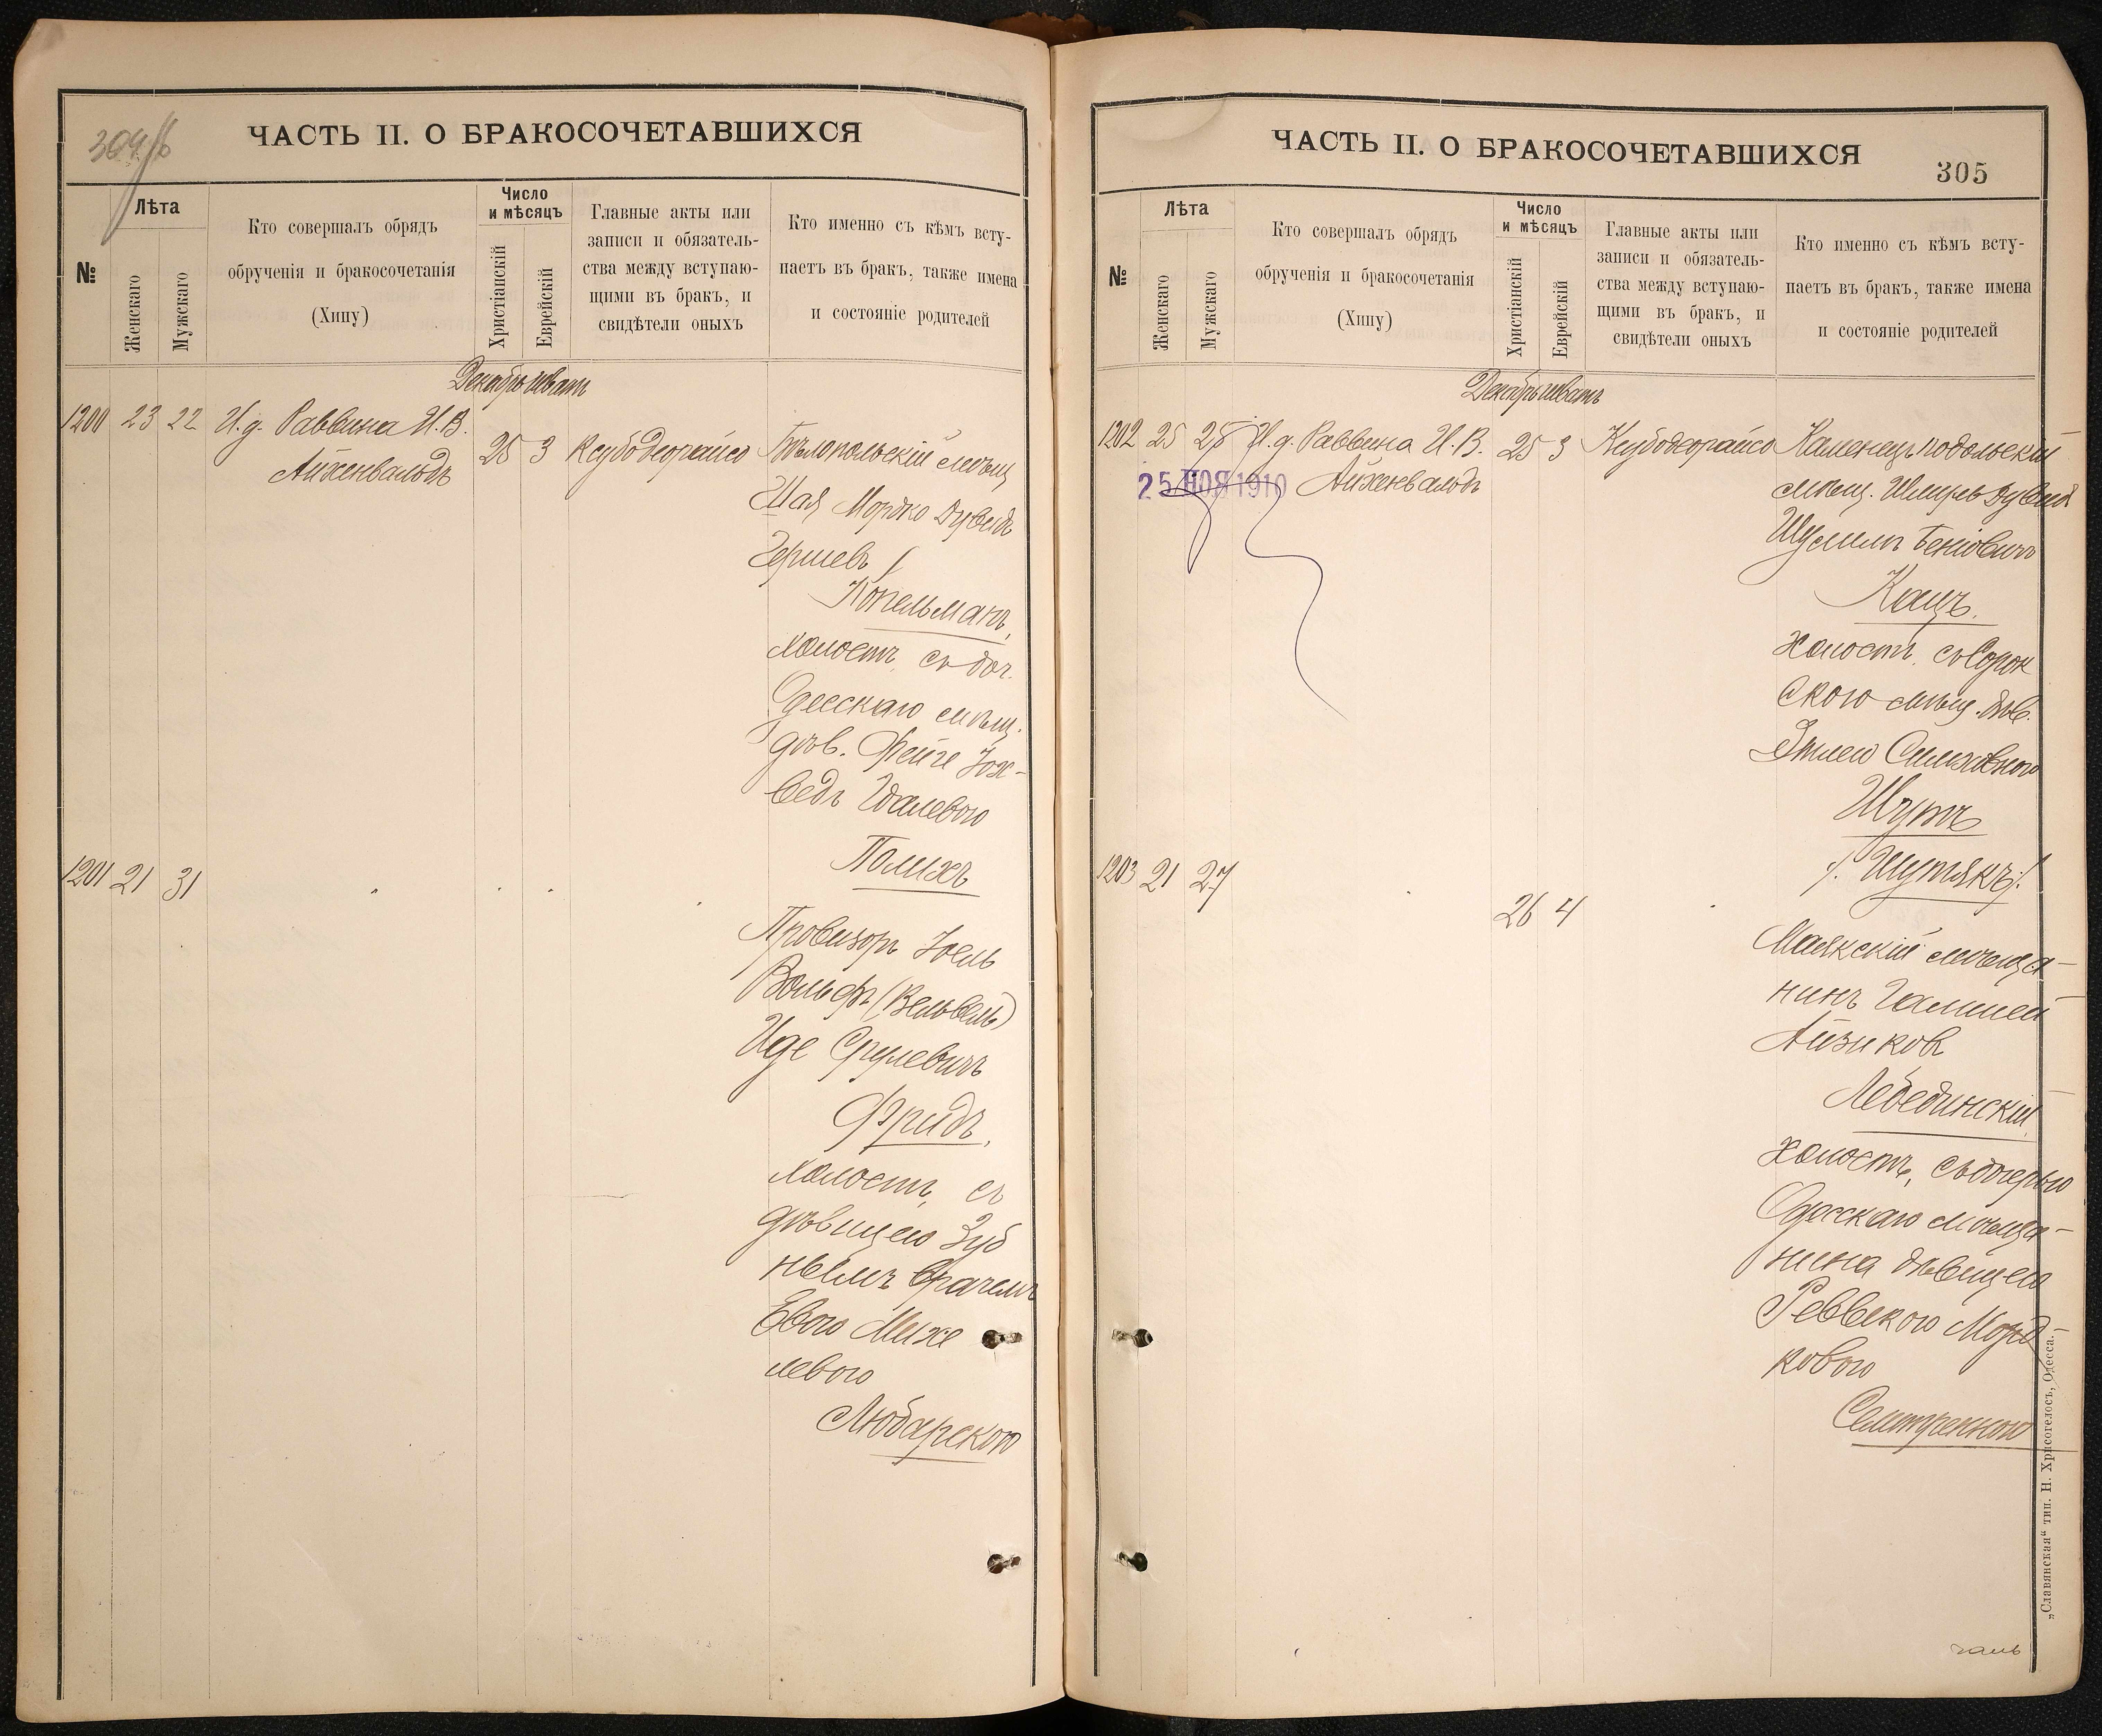 304/б
ЧАСТЬ II. О БРАКОСОЧЕТАВШИХСЯ
№
Лѣта
Женскаго
Мужскаго
Кто совершалъ обрядъ
обрученія и бракосочетанія
(Хипу)
Число
и мѣсяцъ
Христіанскій
Еврейскій
Главные акты или
записи и обязатель-
ства между вступаю-
щими въ бракъ, и
свидѣтели оныхъ
Кто именно съ кѣмъ всту-
паетъ въ бракъ, также имена
и состояніе родителей
Декабрь шватъ
1200 23 22 И.д. Раввина И.В.
Айхенвальдъ
25 3 Ксубодеорайсо
Бѣлопольскій мѣщ
Шая Мордко Дувидъ
Гершевъ
Копельманъ,
холостъ, съ доч.
Одесскаго мѣщ.
дѣв. Фейге Іох-
ведъ Гдалевою
Полихъ
1201 21 31
Провизоръ Іоель
Вольфъ (Вельвель)
Иде Срулевичъ
Фридъ,
холостъ, съ
дѣвицею Зуб
нымъ врачемъ
Евою Михе
левою
Любарскою
ЧАСТЬ II. О БРАКОСОЧЕТАВШИХСЯ
305
№
Лѣта
Женскаго
Мужскаго
Кто совершалъ обрядъ
обрученія и бракосочетанія
(Хипу)
Число
и мѣсяцъ
Христіанскій
Еврейскій
Главные акты или
записи и обязатель-
ства между вступаю-
щими въ бракъ, и
свидѣтели оныхъ
Кто именно съ кѣмъ всту-
паетъ въ бракъ, также имена
и состояніе родителей
Декабрь шватъ
1202 25 28 И.д. Раввина И.В.
Айхенвальдъ
25 НОЯ 1910
25 3 Ксубодеорайсо
Каменецъ подольскій
мѣщ. Шмуль Дувид
Шулимъ Беніовичъ
Кацъ.
холостъ, съ Сорок
скою мѣщ. дѣв.
Этлею Симховною
Шутъ
/. Шутякъ/.
1203 21 27
26 4
Маякскій мѣща-
нинъ Гамшей
Айзиков
Лебединскій
холостъ, съ дочерью
Одесскаго мѣща-
нина дѣвицею
Реввекою Морд-
ковою
Селитренною
„Славянская“ тип. Н. Хрисогелосъ, Одесса.